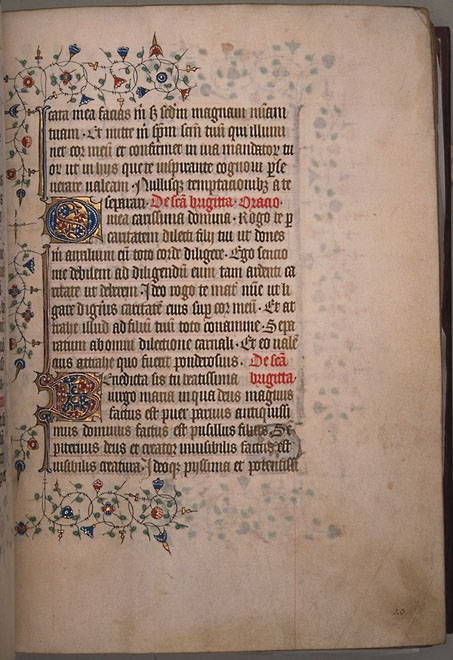 cata mea facias m̄ sʒ scdm magnam mīam
tuam · Et mitte m̄ spm̄ scm̄ tuū qui illumi
net cor meū et confirmet in via mandator̄ tu
or ut in hijs que te inspirante cognoui p̄se
uerare ualeam · Nullisqʒ temptacionibʒ a te
separari · De scā brigitta · Oracio ·
O mea carissima domina · Rogo te p̄
caritatem dilecti filij tui ut dones
m̄ auxilium eū toto corde diligere · Ego sencio
me debilem ad diligendū eum tam ardenti ca
ritate ut deberem · Ideo rogo te mat̄ mīe ut li
gare digneris caritatē eius sup cor meū · Et at
trahe illud ad filiū tuū toto conamine · Sepa
ratum ab omni dilectione carnali · Et eo ualē
cius attrahe quo fuerit ponderosius · De scā
Benedicta sis tu beatissima brigitta ·
uirgo maria in qua deus magnus
factus est puer paruus antiquissi
mus dominus factus est pusillus filius · Se
piternus deus et creator inuisibilis factus est
uisibilis creatura · Ideoqʒ pijssima et potentiss
20